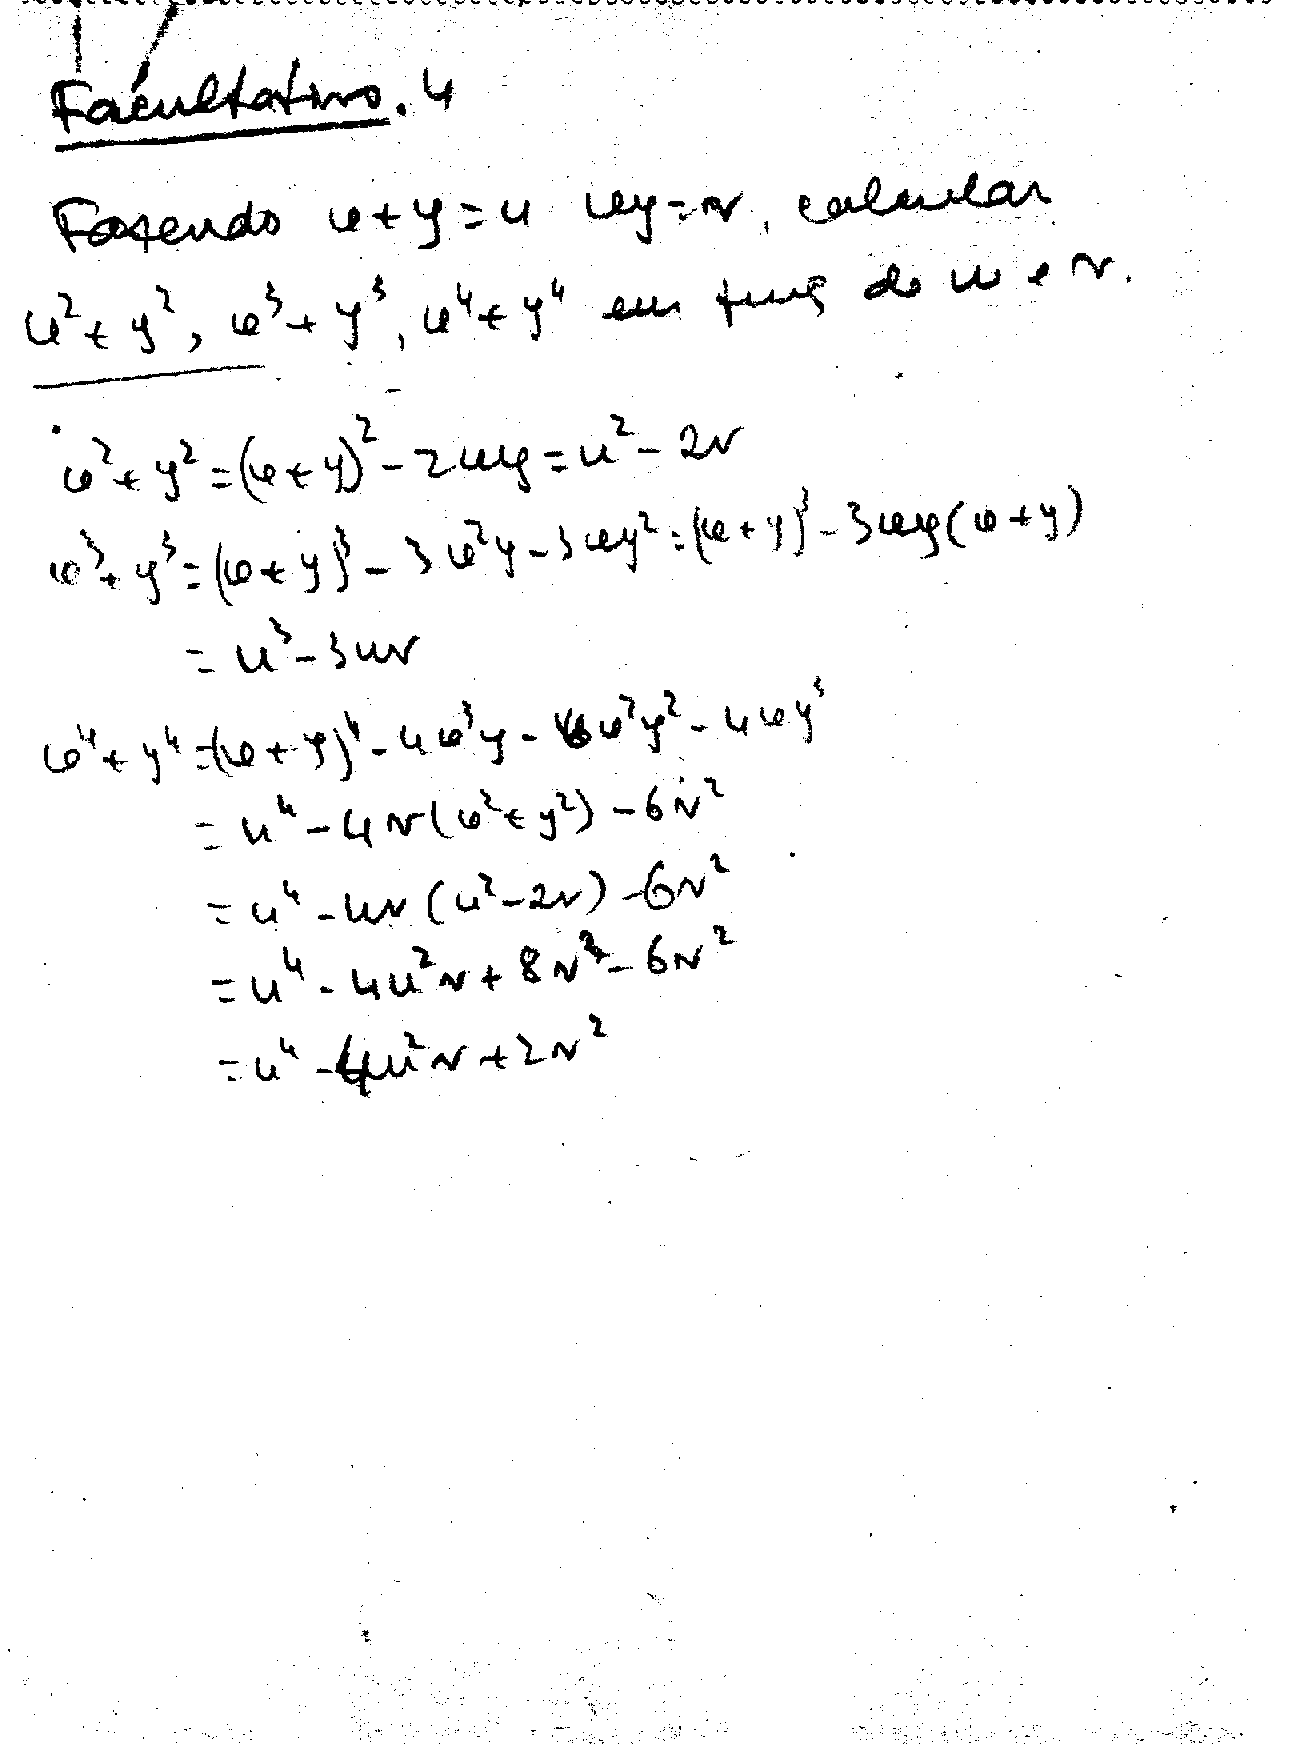 Facultativo. 4
Fazendo x+y=u xy=v, calcular
x²+y², x³+y³, x⁴+y⁴ em funç de u e v.
x²+y²=(x+y)²-2xy=u²-2v
x³+y³=(x+y)³-3x²y-3xy²=(x+y)³-3xy(x+y)
=u³-3uv
x⁴+y⁴=(x+y)⁴-4x³y-6x²y²-4xy³
=u⁴-4v(x²+y²)-6v²
=u⁴-4v(u²-2v)-6v²
=u⁴-4u²v+8v²-6v²
=u⁴-4u²v+2v²